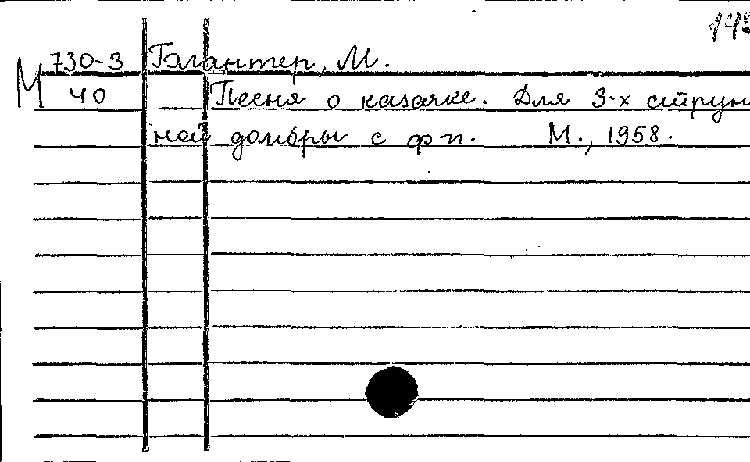 143
730-3 Галантер, М.
М 40 Песня о казачке. Для 3-х струн
ной домбры с фп. М., 1958.